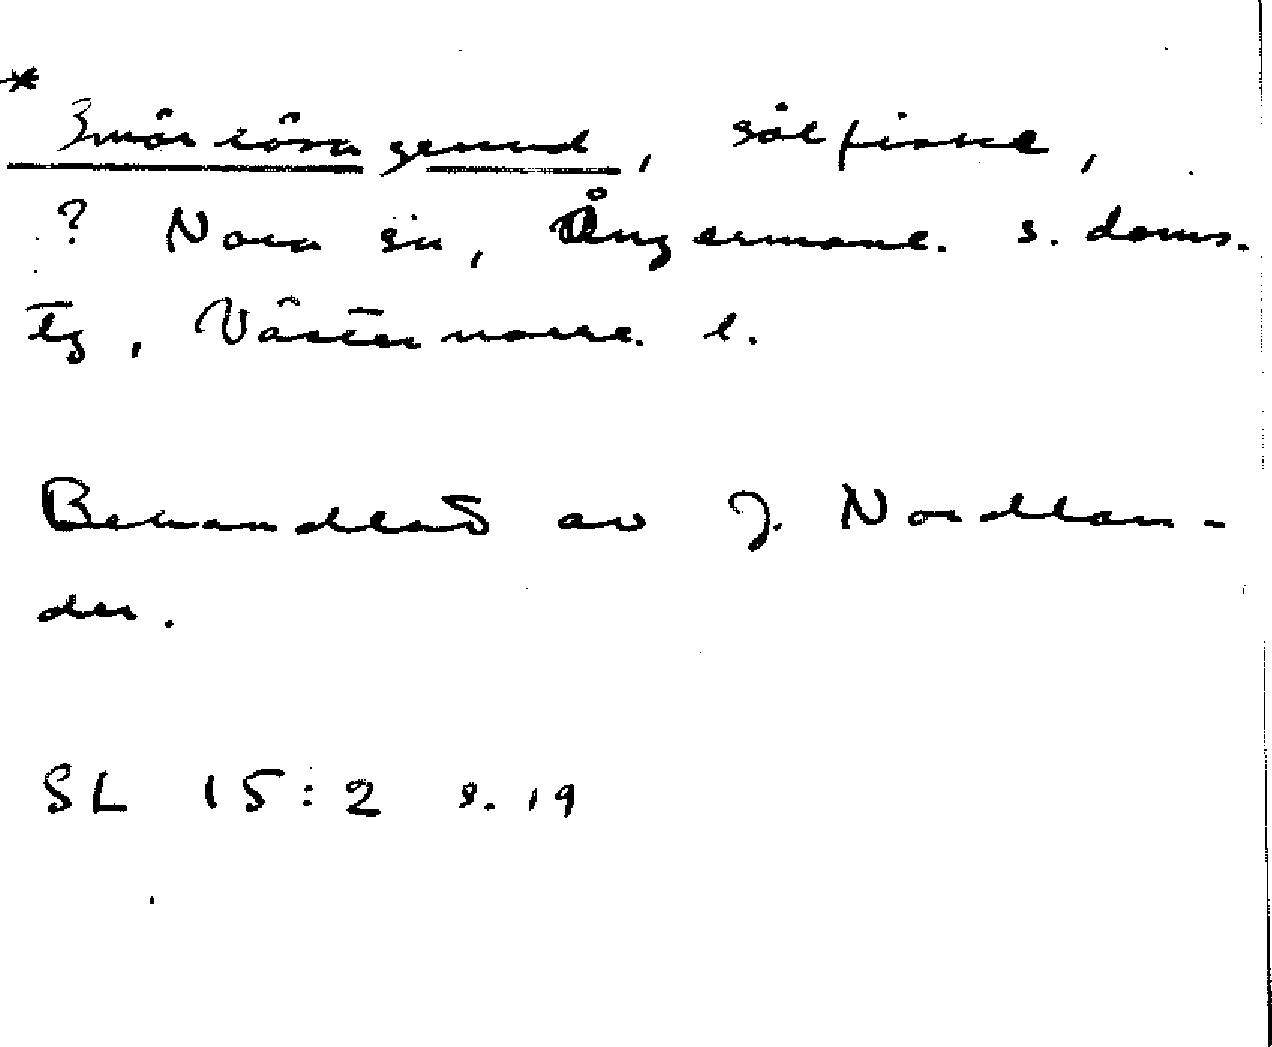 *
Smörlösa grund, sälfiske,
? Nora sn, Ångermanl. s. doms.
tg, Västernorrl. l.
Behandlat av J. Nordlan-
der.
SL 15:2 s. 19